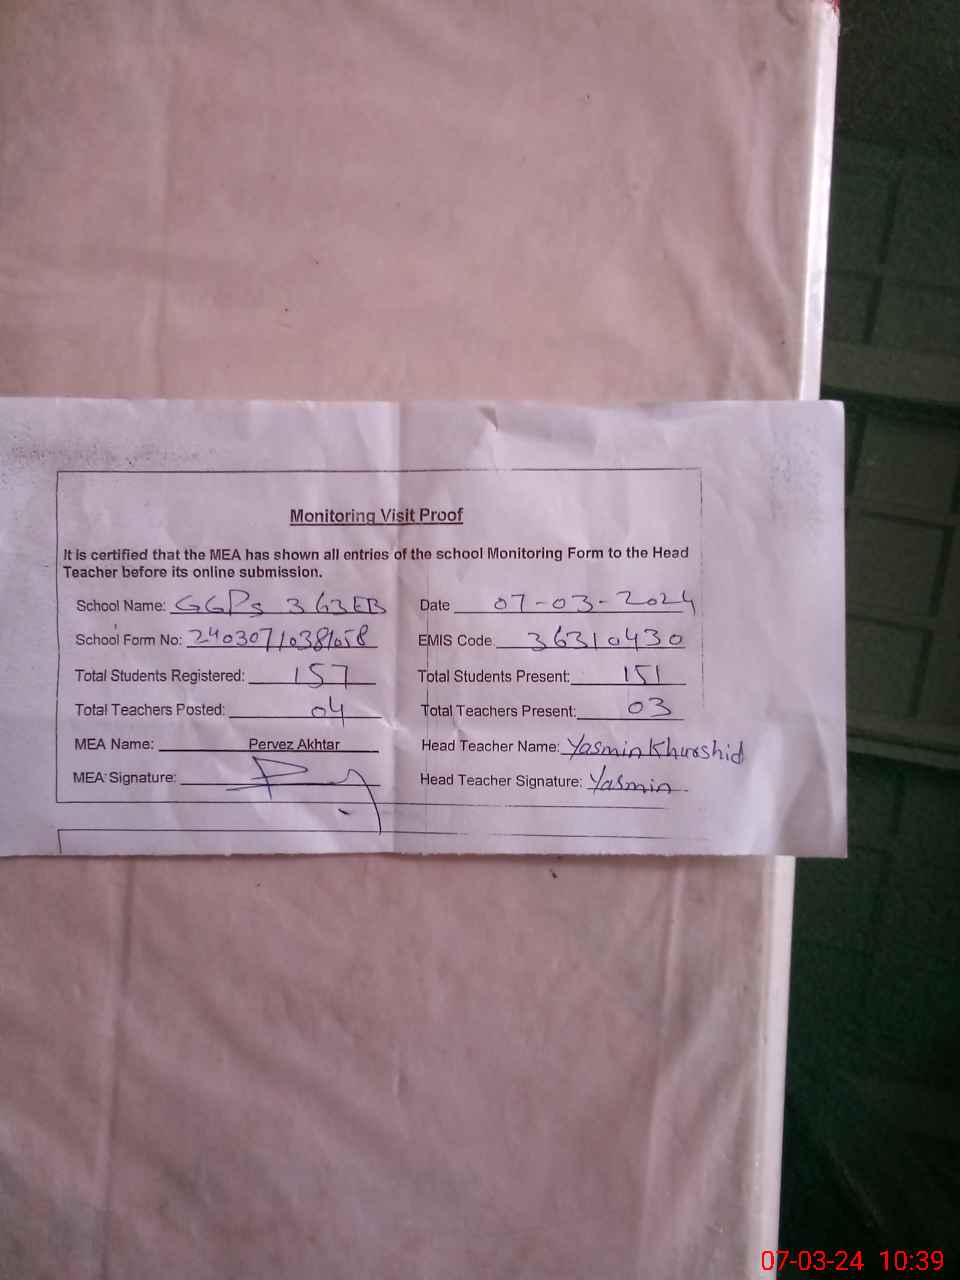 Monitoring Visit Proof
It is certified that the MEA has shown all entries of the school Monitoring Form to the Head
Teacher before its online submission.
School Name: GGPs 363EB Date 07-03-2024
School Form No: 24030710381058 EMIS Code 36310430
Total Students Registered: 157 Total Students Present: 151
Total Teachers Posted: 04 Total Teachers Present: 03
MEA Name: Pervez Akhtar Head Teacher Name: Yasmin Khurshid
MEA Signature: Head Teacher Signature: Yasmin
07-03-24 10:39